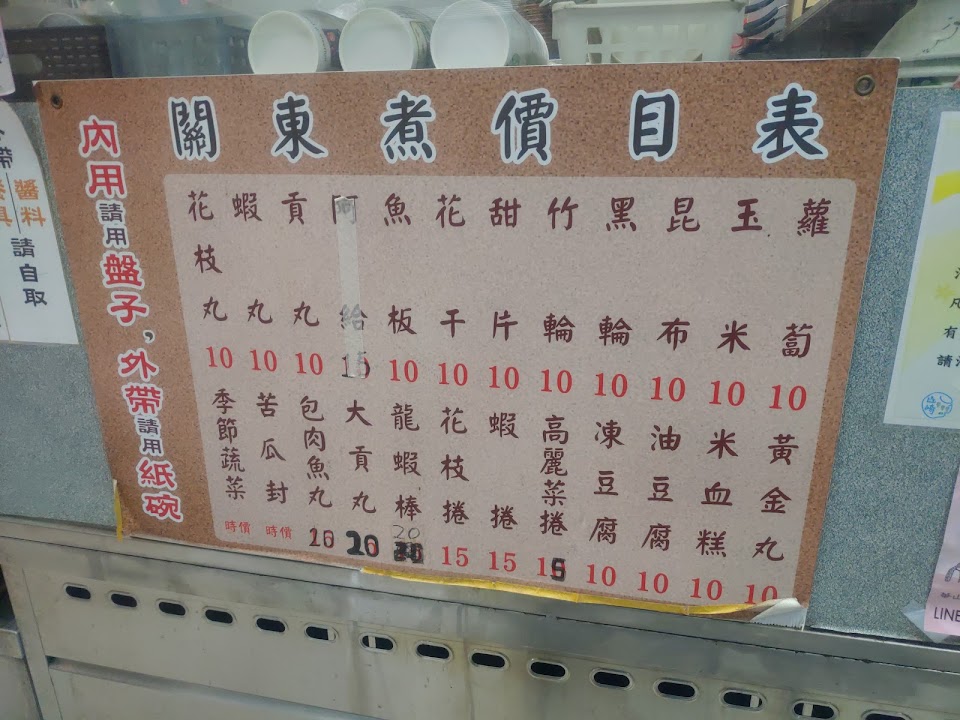 關東煮價目表
蘿蔔 10
玉米 10
昆布 10
黑輪 10
竹輪 10
甜片 10
花干 10
魚板 10
阿給
貢丸 10
蝦丸 10
花枝丸 10
黃金丸 10
米血糕 10
油豆腐 10
凍豆腐 10
高麗菜捲 15
蝦捲 15
花枝捲 15
龍蝦棒 20
大貢丸 20
包肉魚丸
苦瓜封 時價
季節蔬菜 時價
內用請用盤子,外帶請用紙碗
醬料
請自取
LINE